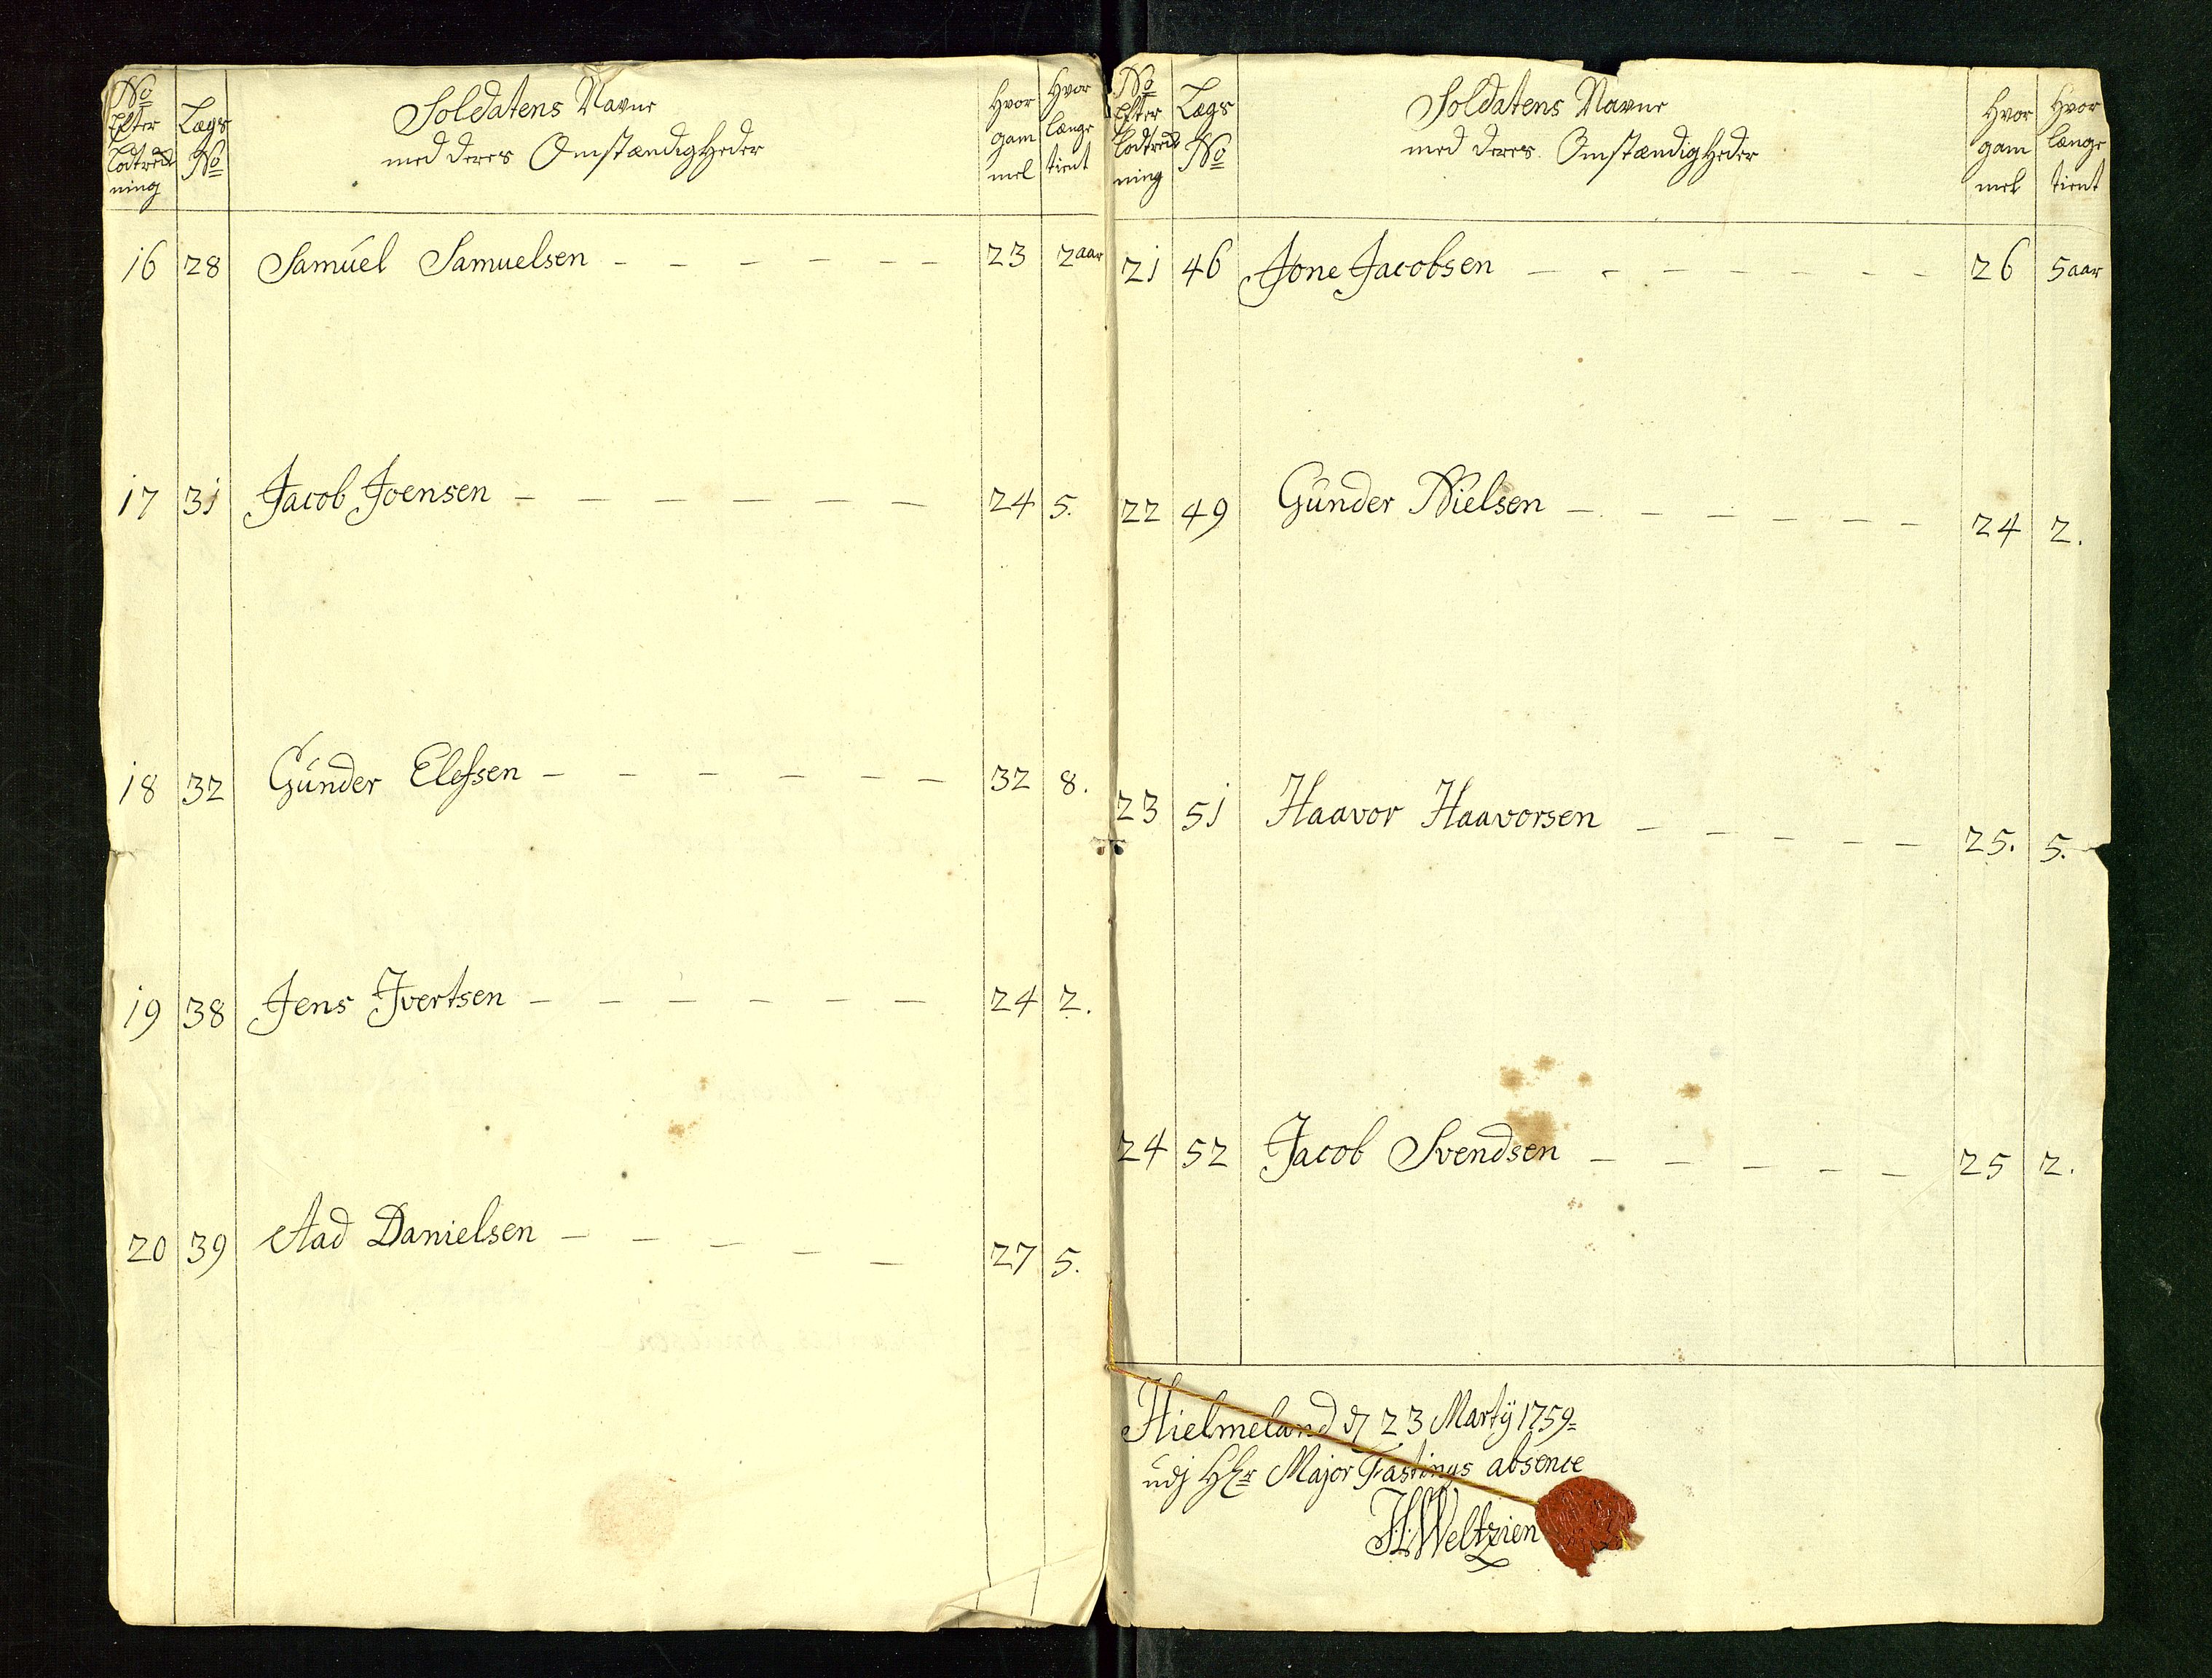 No Efter Lodtræk ning
Lægs No
Soldatens Navne
med deres Omstændigheder
Hvor gam mel
Hvor længe tient
16 28 Samúel Samuelsen 23 2 aar
17 31 Jacob Joensen 24 5.
18 32 Gúnder Elefsen 32 8.
19 38 Jens Jvertsen 24 2.
20 39 Aad Danielsen 27 5.
No Efter Lodtræk ning
Lægs No
Soldatens Navne
med deres Omstændigheder
Hvor gam mel
Hvor længe tient
21 46 Jone Jacobsen 26 5 aar
22 49 Gunder Nielsen 24 2.
23 51 Haavor Haavorsen 25. 5.
24 52 Jacob Svendsen 25 2.
Hielmeland d 23 Martÿ 1759
udj Hr Major Fastings absence
H: Weltzien